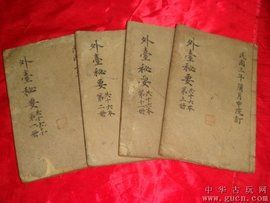 外臺秘要
共十六本
第一冊
外臺秘要
共十六本
第二冊
外臺秘要
共十六本
外臺秘要
共十六本
第三冊
民國三年
中华古玩网
www.gucn.com